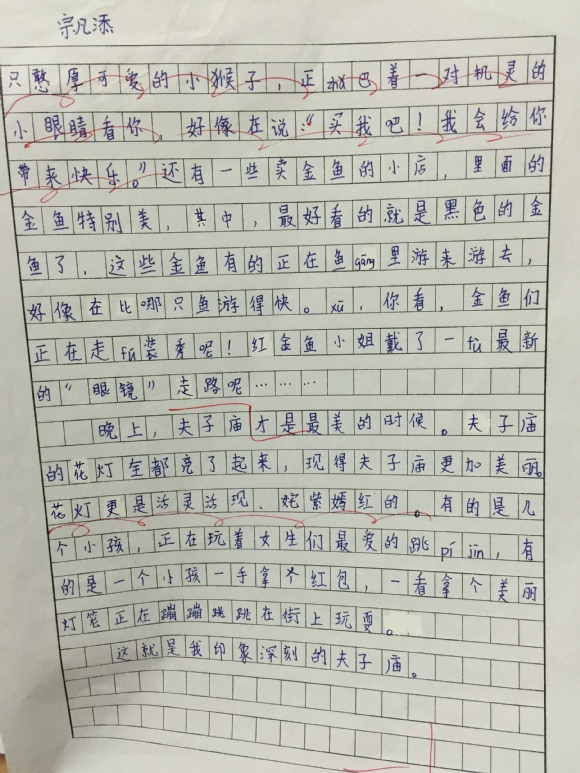 宗凡添
只憨厚可爱的小猴子,正zhǎ巴着一对机灵的
小眼睛看你,好像在说:“买我吧!我会给你
带来快乐。”还有一些卖金鱼的小店,里面的
金鱼特别美,其中,最好看的就是黑色的金
鱼了,这些金鱼有的正在鱼gāng里游来游去,
好像在比哪只鱼游得快。xū,你看,金鱼们
正在走fú装秀呢!红金鱼小姐戴了一fù最新
的“眼镜”走路呢………
晚上,夫子庙才是最美的时候。夫子庙
的花灯全都亮了起来,现得夫子庙更加美丽。
花灯更是活灵活现、姹紫嫣红的。有的是几
个小孩,正在玩着女生们最爱的跳pí jīn,有
的是一个小孩一手拿个红包,一看拿个美丽
灯笼正在蹦蹦跳跳在街上玩耍。
这就是我印象深刻的夫子庙。